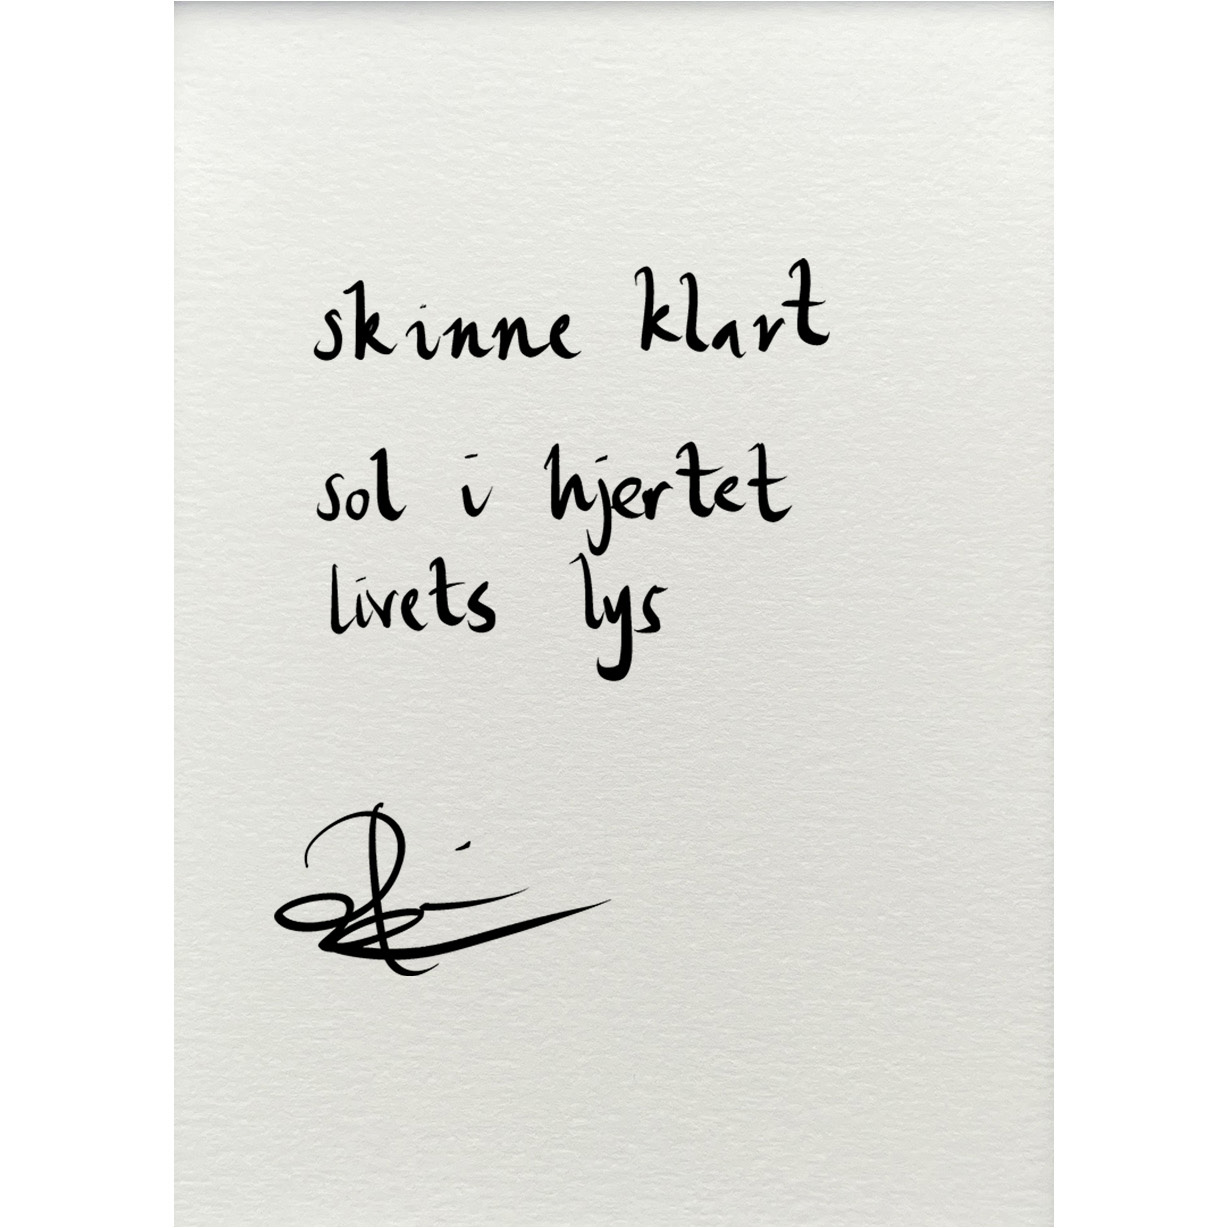 skinne klart
sol i hjertet
livets lys